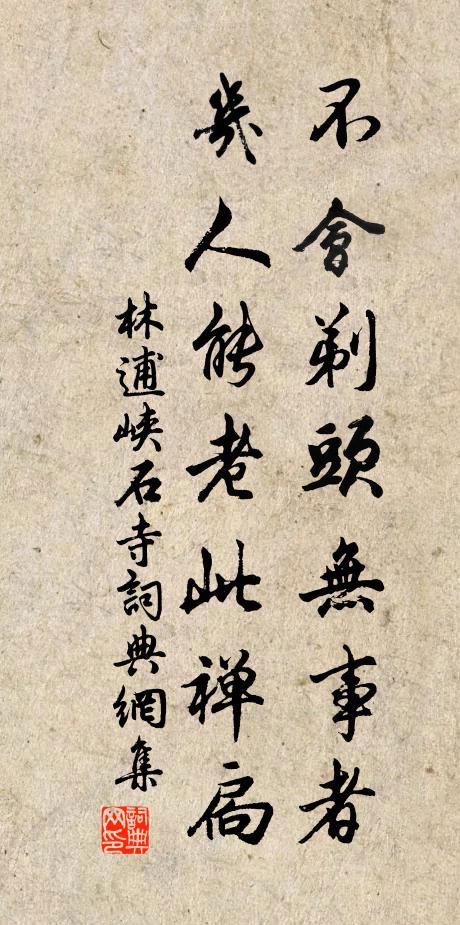 不會剃頭無事者
幾人能老此禅扃
林逋峽石寺詞典網集
詞典网印